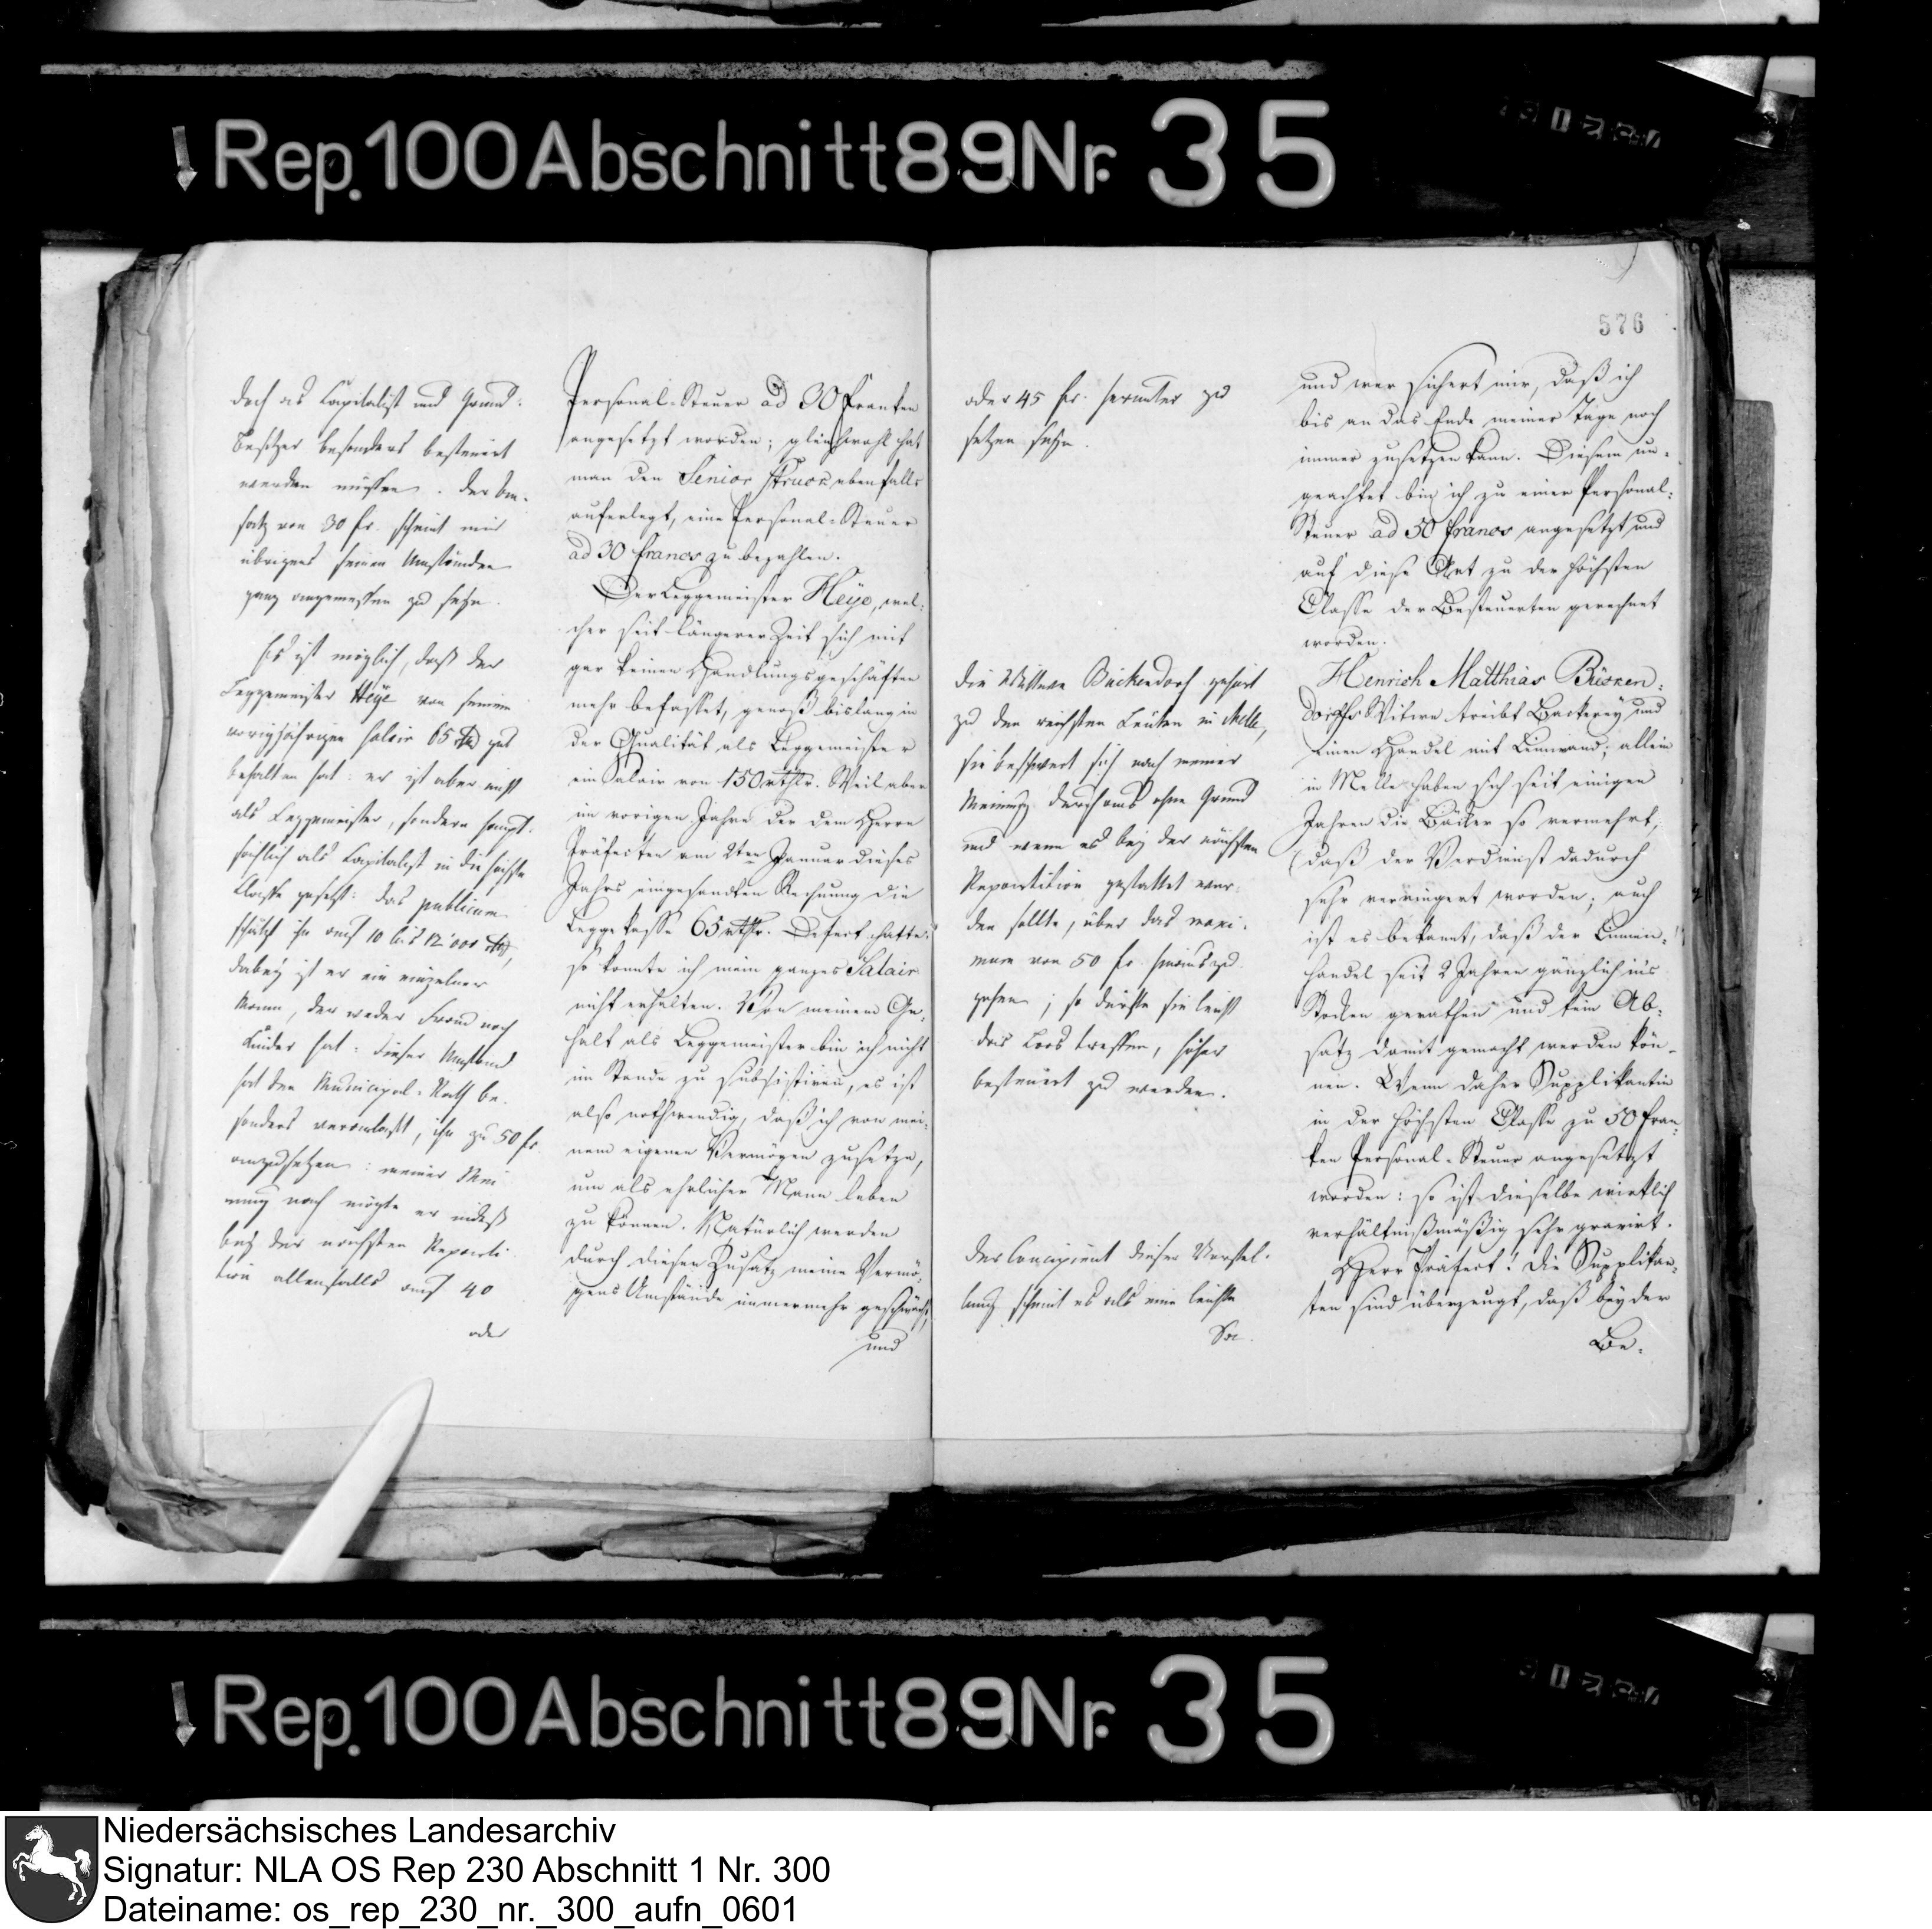 Rep. 100 Abschnitt 89 Nr. 35
doch als Capitalist und Grund-
besitzer besonders besteuert
werden müssen. Der An-
satz von 30 fr. scheint mir
übrigens seinen Umständen
ganz angemessen zu seyn.
Es ist möglich, daß der
Leggemeister Heye von seinem
vorigjährigen Salair 65 rthlr gut
behalten hat: er ist aber nicht
als Leggemeister, sondern haupt-
sächlich als Capitalist in die höchste
Classe gesetzt: das publicum
schätzt ihn auf 10 bis 12'000 rthlr,
dabey ist er ein einzelner
Mann, der weder Frau noch
Kinder hat: dieser Umstand
hat den Municipal-Rath be-
sonders veranlaßt, ihn zu 50 fr.
anzusetzen: meiner Mei-
nung nach mögte er indeß
bey der nächsten Reparti-
tion allenfalls auf 40
oder
Personal-Steuer ad 30 Franken
angesetzt worden; gleichwohl hat
man den Senior Struck ebenfalls
auferlegt, eine Personal-Steuer
ad 30 francs zu bezahlen.
Der Leggemeister Heye, wel-
cher seit längerer Zeit sich mit
gar keinen Handlungsgeschäften
mehr befasset, genoß bislang in
der Qualität als Leggemeister
ein Salair von 150 rthlr. Weil aber
im vorigen Jahre der dem Herrn
Präfecten am 2ten Januar dieses
Jahrs eingesandten Rechnung die
Leggekasse 65 rthlr. Defect hatte:
so konnte ich mein ganzes Salair
nicht erhalten. Von meinem Ge-
halt als Leggemeister bin ich nicht
im Stande zu subsistiren, es ist
also nothwendig, daß ich von mei-
nem eigenen Vermögen zusetze,
um als ehrlicher Mann leben
zu können. Natürlich werden
durch diesen Zusatz meine Vermö-
gens Umstände immermehr geschwächt,
und
oder 45 fr. herunter zu
setzen seyn.
Die Wittwe Bückendorf gehört
zu den reichsten Leuten in Melle,
sie beschwert sich nach meiner
Meinung durchaus ohne Grund
und wenn es bey der nächsten
Repartition gestattet wer-
den sollte, über das maxi-
mum von 50 fr. hinaus zu
gehen; so dürfte sie leicht
das Loos treffen, höher
besteuert zu werden.
Der Concipient dieser Vorstel-
lung scheint es als eine leichte
576
und wer sichert mir, daß ich
bis an das Ende meiner Tage noch
immer zusetzen kann. Diesem un-
geachtet bin ich zu einer Personal-
Steuer ad 50 francs angesetzt und
auf diese Art zu der höchsten
Classe der Besteuerten gerechnet
worden.
Henrich Matthias Bücken-
dorffs Witwe treibt Backerey und
einen Handel mit Leinwand; allein
in Melle haben sich seit einigen
Jahren die Bäcker so vermehrt,
daß der Verdienst dadurch
sehr verringert worden; auch
ist es bekannt, daß der Linnen-
handel seit 2 Jahren gänzlich ins
Stocken gerathen und kein Ab-
satz damit gemacht werden kön-
nen. Wenn daher Supplikantin
in der höchsten Classe zu 50 Fran-
ken Personal-Steuer angesetzt
worden: so ist dieselbe wirklich
verhältnißmäßig sehr gravirt.
Herr Präfect! Die Supplikan-
ten sind überzeugt, daß bey der
Be-
Rep. 100 Abschnitt 89 Nr. 35
Niedersächsisches Landesarchiv
Signatur: NLA OS Rep 230 Abschnitt 1 Nr. 300
Dateiname: os_rep_230_nr._300_aufn_0601